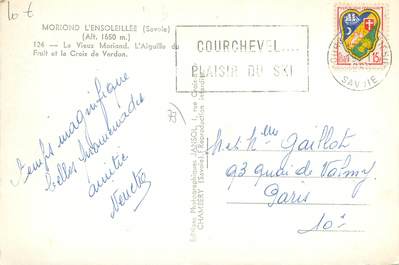 10 €
MORIOND L'ENSOLEILLEE (Savoie)
(Alt. 1650 m.)
124 — Le Vieux Moriond. L'Aiguille du
Fruit et la Croix de Verdon.
COURCHEVEL....
PLAISIR DU SKI
SAVOIE
15
Temps magnifique
belles promenades
amitié
Editions Photographiques JANSOL, 1, rue Croix
CHAMBERY (Savoie) Reproduction interdite
Gaillot
93 quai de Valmy
Paris
10e